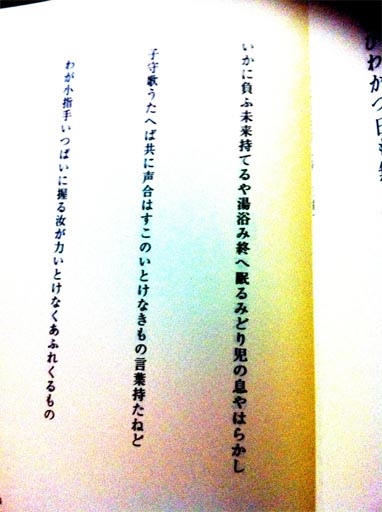 いかに負ふ未来持てるや湯浴み終へ眠るみどり児の息やはらかし
子守歌うたへば共に声合はすこのいとけなきもの言葉持たねど
わが小指手いつぱいに握る汝が力いとけなくあふれくるもの